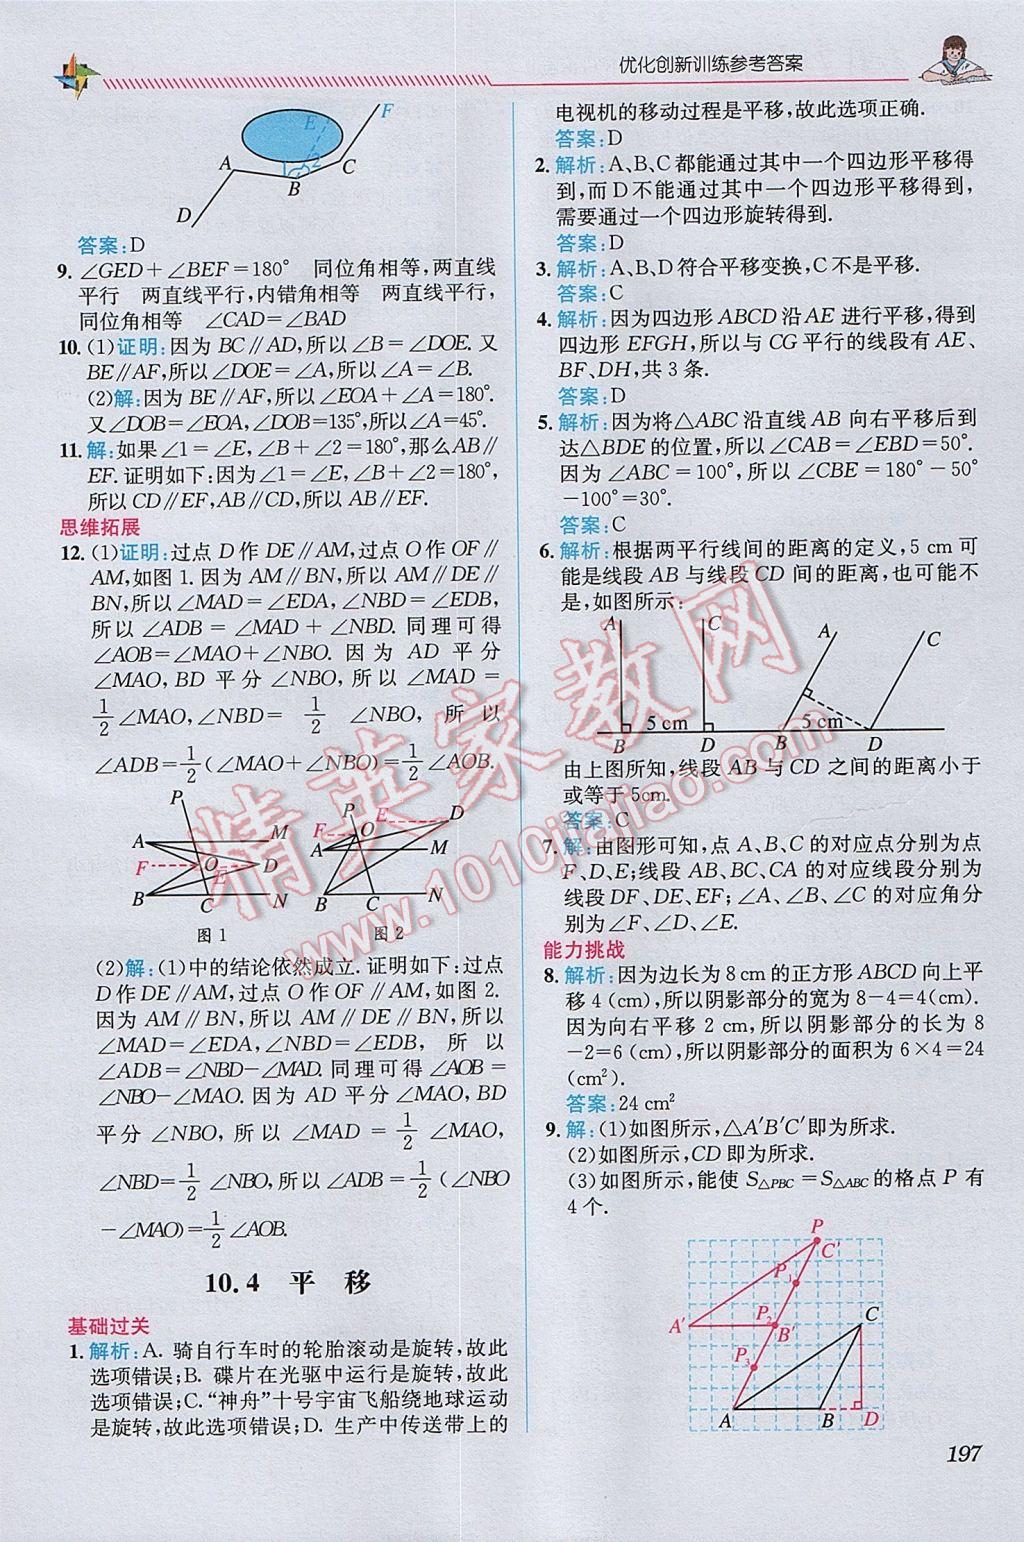 优化创新训练参考答案
F
E
A
1
2
C
B
D
答案:D
9. ∠GED+∠BEF=180° 同位角相等,两直线
平行 两直线平行,内错角相等 两直线平行,
同位角相等 ∠CAD=∠BAD
10. (1)证明:因为 BC∥AD,所以∠B=∠DOE. 又
BE∥AF,所以∠DOE=∠A,所以∠A=∠B.
(2)解:因为 BE∥AF,所以∠EOA+∠A=180°.
又∠DOB=∠EOA,∠DOB=135°,所以∠A=45°.
11. 解:如果∠1=∠E,∠B+∠2=180°,那么AB∥
EF. 证明如下:因为∠1=∠E,∠B+∠2=180°,
所以 CD∥EF,AB∥CD,所以 AB∥EF.
思维拓展
12. (1)证明:过点 D 作 DE∥AM,过点 O 作 OF∥
AM,如图 1. 因为 AM∥BN,所以 AM∥DE∥
BN,所以∠MAD=∠EDA,∠NBD=∠EDB,
所以∠ADB=∠MAD+∠NBD. 同理可得
∠AOB=∠MAO+∠NBO. 因为 AD 平分
∠MAO,BD 平分∠NBO,所以∠MAD=
1/2∠MAO,∠NBD=1/2∠NBO,所以
∠ADB=1/2(∠MAO+∠NBO)=1/2∠AOB.
P
A
M
F
O
E
D
B
C
N
图 1
P
E
D
F
O
A
M
B
C
N
图 2
(2)解:(1)中的结论依然成立. 证明如下:过点
D 作 DE∥AM,过点 O 作 OF∥AM,如图 2.
因为 AM∥BN,所以 AM∥DE∥BN,所以
∠MAD=∠EDA,∠NBD=∠EDB,所以
∠ADB=∠NBD-∠MAD. 同理可得∠AOB=
∠NBO-∠MAO. 因为 AD 平分∠MAO,BD
平分∠NBO,所以∠MAD=1/2∠MAO,
∠NBD=1/2∠NBO,所以∠ADB=1/2(∠NBO
-∠MAO)=1/2∠AOB.
10.4 平 移
基础过关
1. 解析:A. 骑自行车时的轮胎滚动是旋转,故此
选项错误;B. 碟片在光驱中运行是旋转,故此
选项错误;C.“神舟”十号宇宙飞船绕地球运动
是旋转,故此选项错误;D. 生产中传送带上的
电视机的移动过程是平移,故此选项正确.
答案:D
2. 解析:A、B、C 都能通过其中一个四边形平移得
到,而 D 不能通过其中一个四边形平移得到,
需要通过一个四边形旋转得到.
答案:D
3. 解析:A、B、D 符合平移变换,C 不是平移.
答案:C
4. 解析:因为四边形 ABCD 沿 AE 进行平移,得到
四边形 EFGH,所以与 CG 平行的线段有 AE、
BF、DH,共 3 条.
答案:D
5. 解析:因为将△ABC 沿直线 AB 向右平移后到
达△BDE 的位置,所以∠CAB=∠EBD=50°.
因为∠ABC=100°,所以∠CBE=180°-50°
-100°=30°.
答案:C
6. 解析:根据两平行线间的距离的定义,5 cm 可
能是线段 AB 与线段 CD 间的距离,也可能不
是,如图所示:
A
C
A
C
5 cm
5 cm
B
D
B
D
由上图所知,线段 AB 与 CD 之间的距离小于
或等于 5cm.
答案:C
7. 解:由图形可知,点 A、B、C 的对应点分别为点
F、D、E;线段 AB、BC、CA 的对应线段分别为
线段 DF、DE、EF;∠A、∠B、∠C 的对应角分
别为∠F、∠D、∠E.
能力挑战
8. 解析:因为边长为 8 cm 的正方形 ABCD 向上平
移 4 (cm),所以阴影部分的宽为 8-4=4(cm).
因为向右平移 2 cm,所以阴影部分的长为 8
-2=6 (cm),所以阴影部分的面积为 6×4=24
(cm²).
答案:24 cm²
9. 解:(1)如图所示,△A′B′C′即为所求.
(2)如图所示,CD 即为所求.
(3)如图所示,能使 S△PBC=S△ABC 的格点 P 有
4 个.
P
C′
P₁
P₂
A′
B′
C
P₃
A
B
D
197
精英家教网
www.1010jiajiao.com